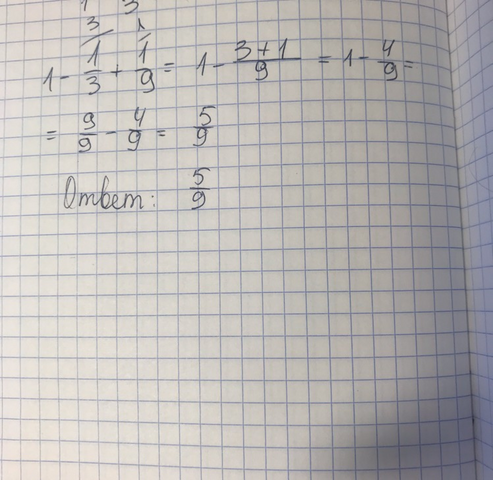 1 3
3 1
1 - 1/3 + 1/9 = 1 - 3+1/9 = 1 - 4/9 =
= 9/9 - 4/9 = 5/9
Ответ: 5/9